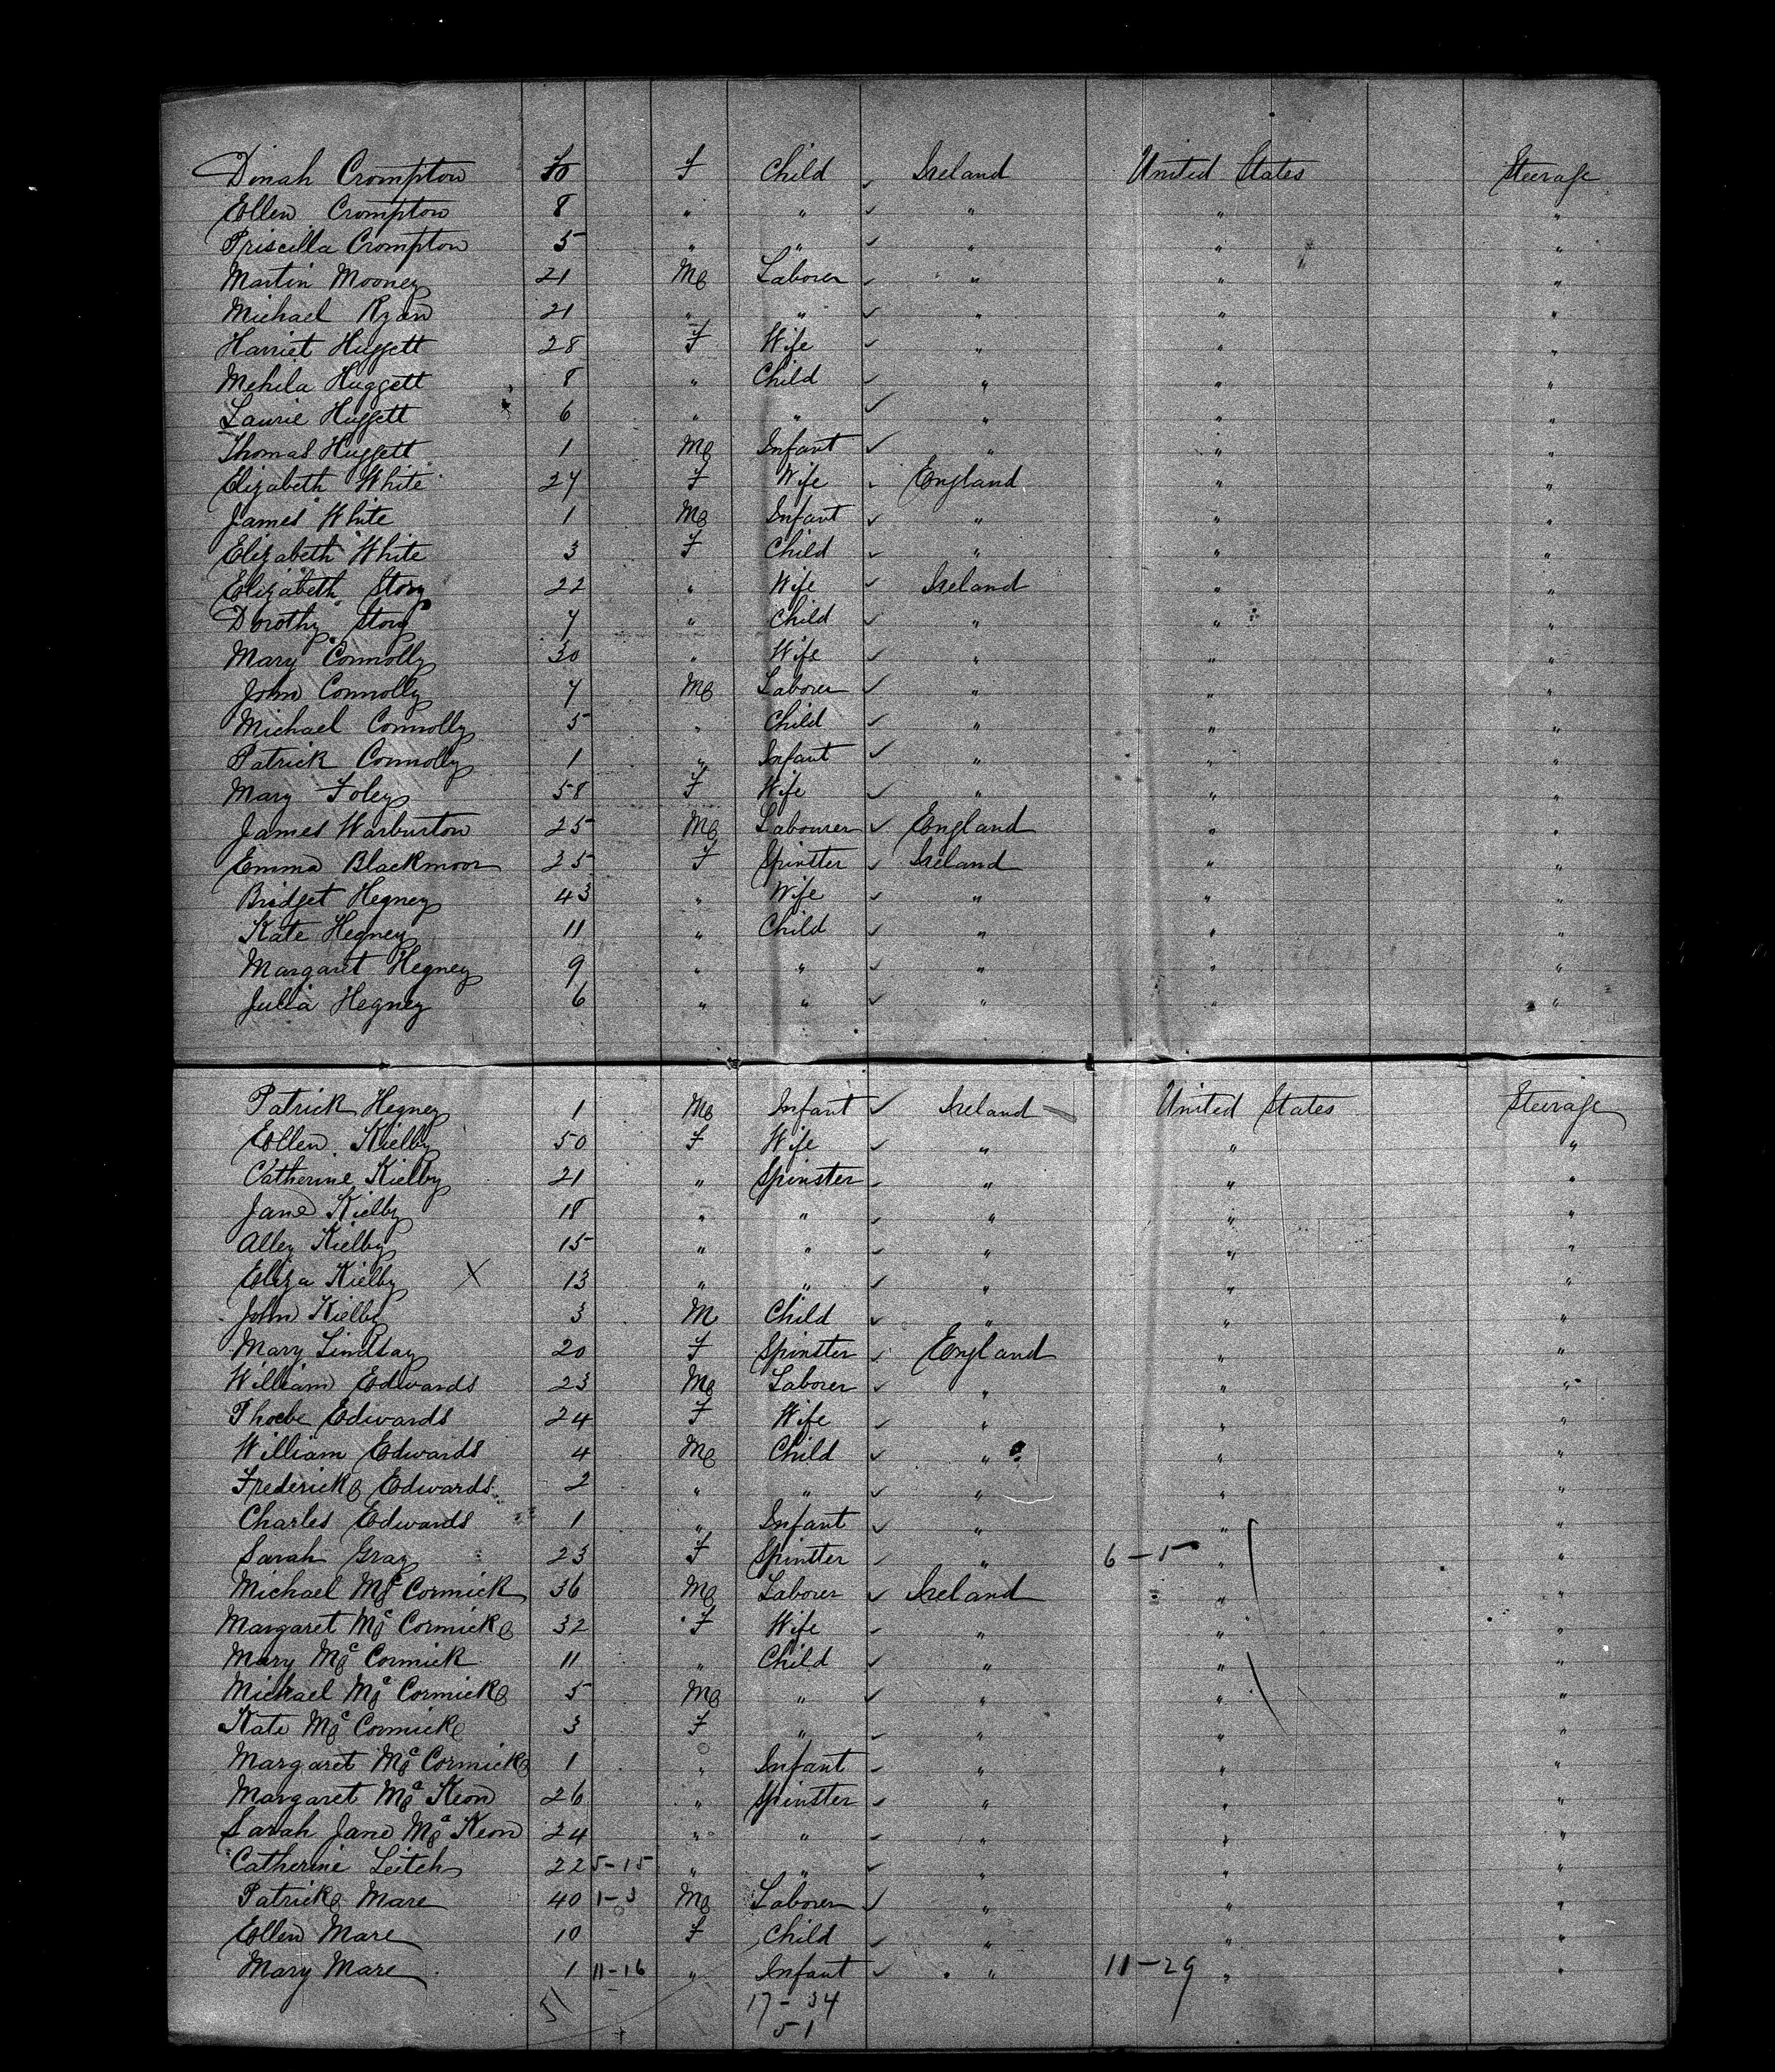 Dinah Crompton 10 F Child ✓ Ireland United States Steerage
Ellen Crompton 8 " " ✓ " " "
Priscilla Crompton 5 " " ✓ " " "
Martin Mooney 21 M Laborer ✓ " " "
Michael Ryan 21 " " ✓ " " "
Harriet Huggett 28 F Wife ✓ " " "
Mehila Huggett 8 " Child ✓ " " "
Laurie Huggett 6 " " ✓ " " "
Thomas Huggett 1 M Infant ✓ " " "
Elizabeth White 27 F Wife ✓ England " "
James White 1 M Infant ✓ " " "
Elizabeth White 3 F Child ✓ " " "
Elizabeth Story 22 " Wife ✓ Ireland " "
Dorothy Story 7 " Child ✓ " " "
Mary Connolly 30 " Wife ✓ " " "
John Connolly 7 M Laborer ✓ " " "
Michael Connolly 5 " Child ✓ " " "
Patrick Connolly 1 " Infant ✓ " " "
Mary Foley 58 F Wife ✓ " " "
James Warburton 25 M Labourer ✓ England " "
Emma Blackmoor 25 F Spinster ✓ Ireland " "
Bridget Hegney 43 " Wife ✓ " " "
Kate Hegney 11 " Child ✓ " " "
Margaret Hegney 9 " " ✓ " " "
Julia Hegney 6 " " ✓ " " "
Patrick Hegney 1 M Infant ✓ Ireland United States Steerage
Ellen Kielby 50 F Wife ✓ " " "
Catherine Kielby 21 " Spinster ✓ " " "
Jane Kielby 18 " " ✓ " " "
Alley Kielby 15 " " ✓ " " "
Eliza Kielby X 13 " " ✓ " " "
John Kielby 3 M Child ✓ " " "
Mary Lindsay 20 F Spinster ✓ England " "
William Edwards 23 M Laborer ✓ " " "
Phoebe Edwards 24 F Wife ✓ " " "
William Edwards 4 M Child ✓ " " "
Frederick Edwards 2 " " ✓ " " "
Charles Edwards 1 " Infant ✓ " " "
Sarah Gray 23 F Spinster ✓ " 6-1 " "
Michael McCormick 36 M Laborer ✓ Ireland " "
Margaret McCormick 32 F Wife ✓ " " "
Mary McCormick 11 " Child ✓ " " "
Michael McCormick 5 M " ✓ " " "
Kate McCormick 3 F " ✓ " " "
Margaret McCormick 1 " Infant ✓ " " "
Margaret McKeon 26 " Spinster ✓ " " "
Sarah Jane McKeon 24 " " ✓ " " "
Catherine Leitch 22 5-15 " " ✓ " " "
Patrick Mare 40 1-3 M Laborer ✓ " " "
Ellen Mare 10 F Child ✓ " " "
Mary Mare 1 11-16 " Infant ✓ " 11-29 " "
51 17-34
51